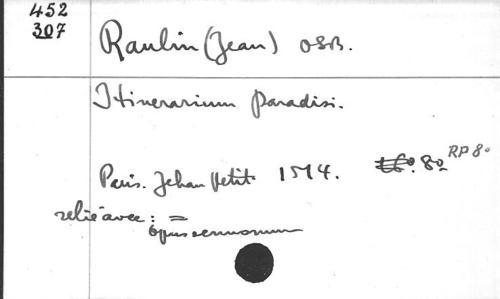 452
307
Raulin (Jean) OSB.
Itinerarium Paradisi.
Paris. Jehan Petit 1514. 8º RP 8º
relié avec : =
Opus sermonum